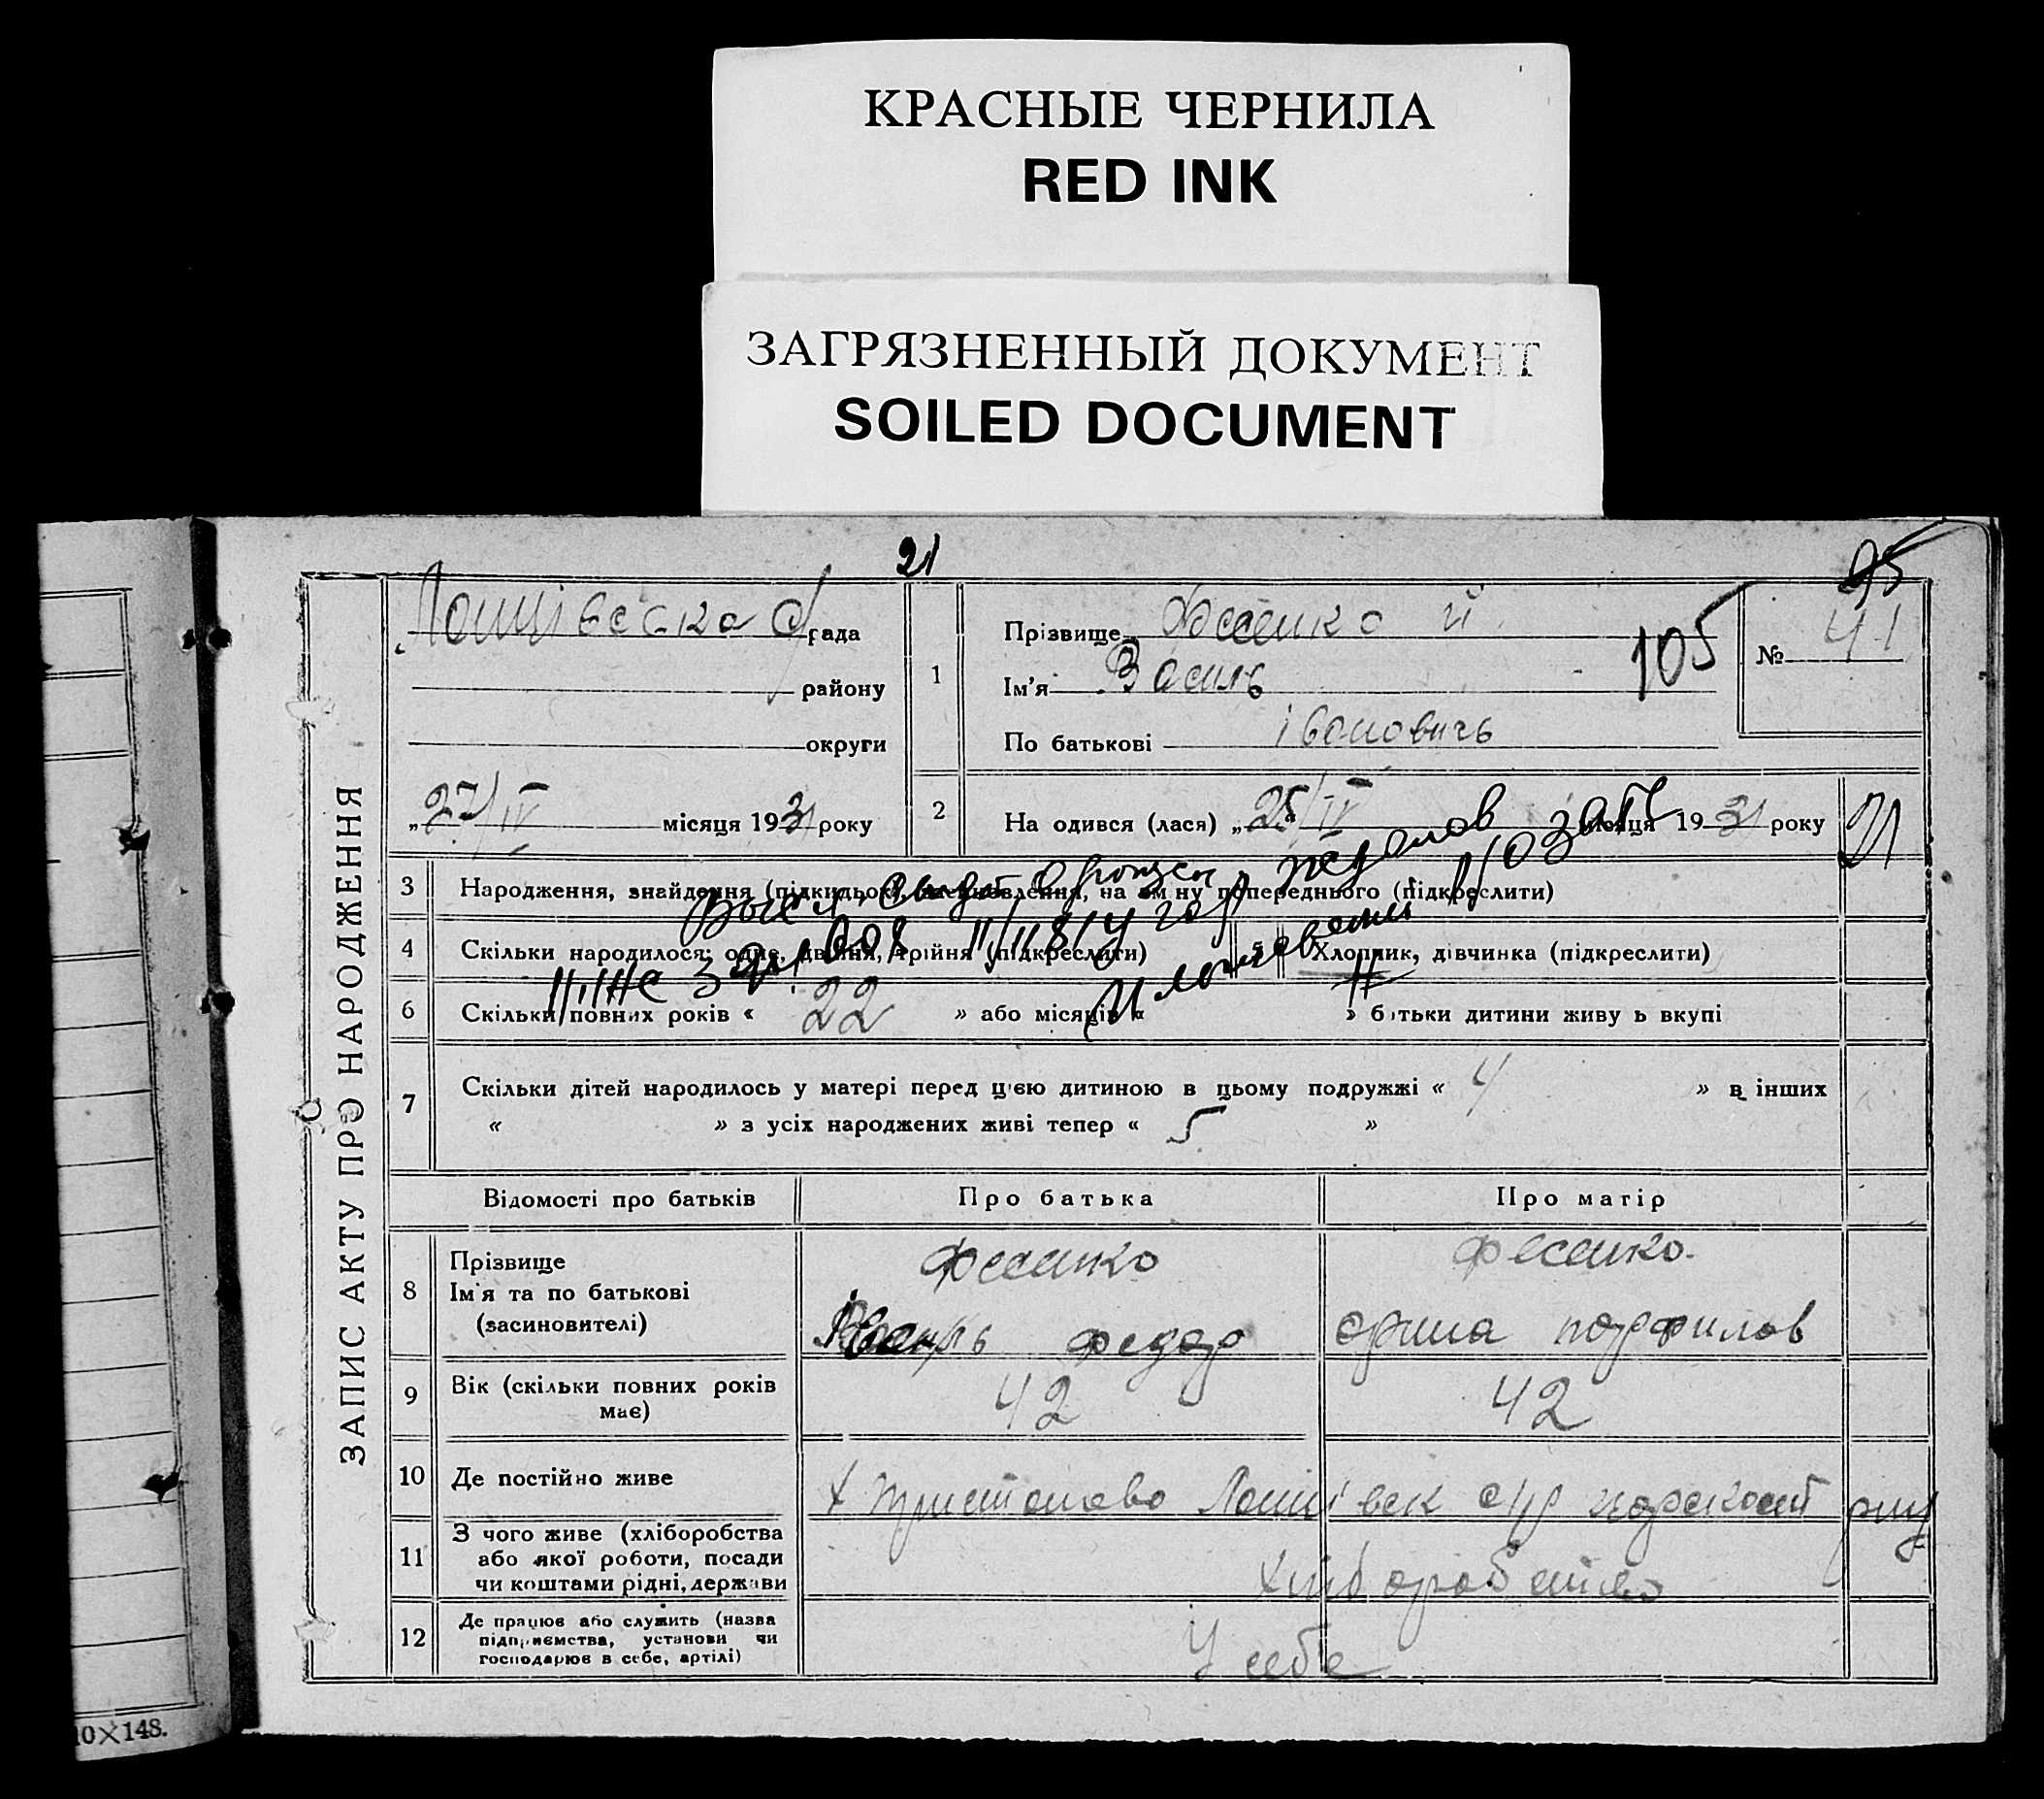 КРАСНЫЕ ЧЕРНИЛА
RED INK
ЗАГРЯЗНЕННЫЙ ДОКУМЕНТ
SOILED DOCUMENT
21
95
ЗАПИС АКТУ ПРО НАРОДЖЕННЯ
рада
району
округи
„27/IV місяця 1931 року
1
Прізвище Фесенко й
Ім'я Василь
По батькові івановичь
105
№ 41
2
На одився (лася) „25/IV місяця 1931 року
21
3
Народження, знайдення (підкидьок), на ам ну попереднього (підкреслити)
4
Скільки народилося: одне, двійня, трійня (підкреслити)
5
Хлопчик, дівчинка (підкреслити)
6
Скільки повних років « 22 » або місяців « » батьки дитини живу ь вкупі
7
Скільки дітей народилось у матері перед цією дитиною в цьому подружжі « 4 » в інших
« » з усіх народжених живі тепер « 5 »
Відомості про батьків
Про батька
Про матір
8
Прізвище
Ім'я та по батькові
(засиновителі)
Фесенко
федор
Фесенко
орина порфилов
9
Вік (скільки повних років
має)
42
42
10
Де постійно живе
х
11
З чого живе (хліборобства
або якої роботи, посади
чи коштами рідні, держави
хліборобство
12
Де працює або служить (назва
підприємства, установи чи
господарює в себе, артілі)
У себе
10×148.